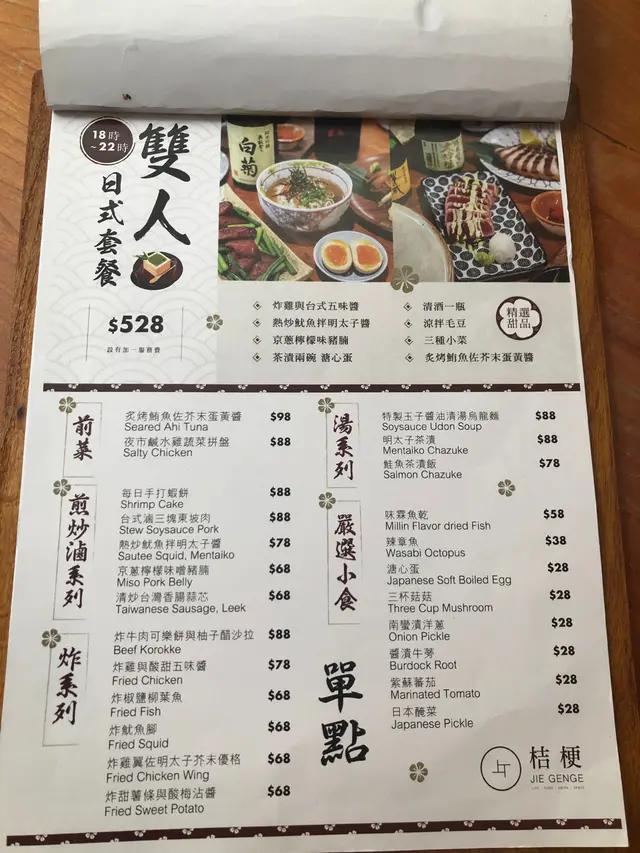 18時
~22時
雙人
日式套餐
白菊
$528
設有加一服務費
炸雞與台式五味醬
熱炒魷魚拌明太子醬
京蔥檸檬味豬腩
茶漬兩碗 溏心蛋
清酒一瓶
涼拌毛豆
三種小菜
炙烤鮪魚佐芥末蛋黃醬
精選
甜品
前菜
炙烤鮪魚佐芥末蛋黃醬 $98
Seared Ahi Tuna
夜市鹹水雞蔬菜拼盤 $88
Salty Chicken
煎炒滷系列
每日手打蝦餅 $88
Shrimp Cake
台式滷三塊東坡肉 $88
Stew Soysauce Pork
熱炒魷魚拌明太子醬 $78
Sautee Squid, Mentaiko
京蔥檸檬味噌豬腩 $68
Miso Pork Belly
清炒台灣香腸蒜芯 $68
Taiwanese Sausage, Leek
炸系列
炸牛肉可樂餅與柚子醋沙拉 $88
Beef Korokke
炸雞與酸甜五味醬 $78
Fried Chicken
炸椒鹽柳葉魚 $68
Fried Fish
炸魷魚腳 $68
Fried Squid
炸雞翼佐明太子芥末優格 $68
Fried Chicken Wing
炸甜薯條與酸梅沾醬 $68
Fried Sweet Potato
湯系列
特製玉子醬油清湯烏龍麵 $88
Soysauce Udon Soup
明太子茶漬 $88
Mentaiko Chazuke
鮭魚茶漬飯 $78
Salmon Chazuke
嚴選小食
味霖魚乾 $58
Millin Flavor dried Fish
辣章魚 $38
Wasabi Octopus
溏心蛋 $28
Japanese Soft Boiled Egg
三杯菇菇 $28
Three Cup Mushroom
南蠻漬洋蔥 $28
Onion Pickle
醬漬牛蒡 $28
Burdock Root
紫蘇蕃茄 $28
Marinated Tomato
日本醃菜 $28
Japanese Pickle
單點
桔梗
JIE GENGE